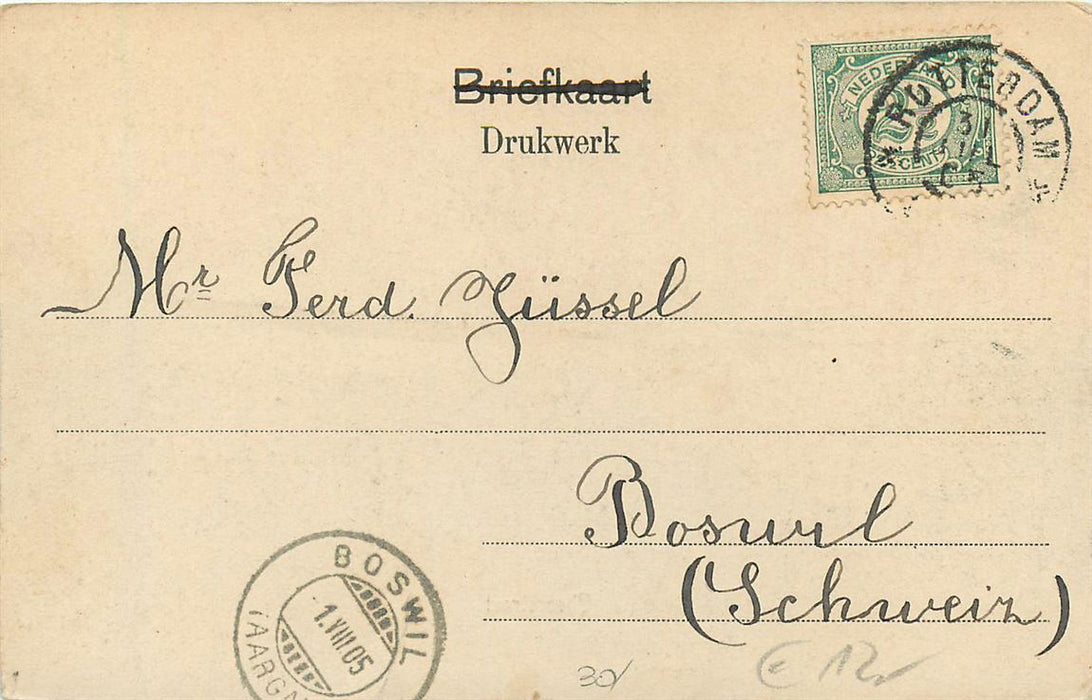 Briefkaart
Drukwerk
NEDERLAND
2½
CENT
ROTTERDAM
31
JUL
05
Mr Ferd. Züssel
Boswil
(Schweiz)
BOSWIL
1.VIII.05
(AARGAU
30
€ 12